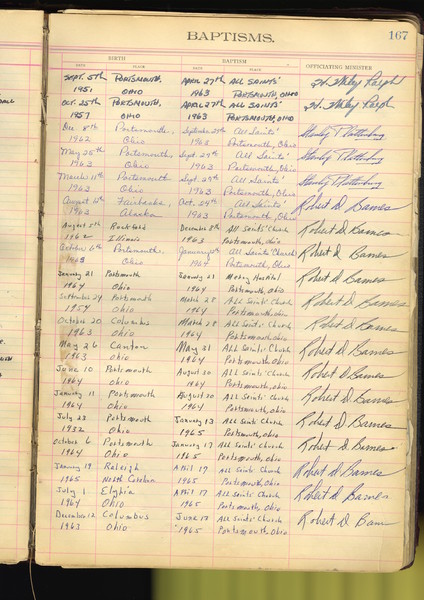 BAPTISMS. 167
BIRTH BAPTISM OFFICIATING MINISTER
DATE PLACE DATE PLACE
SEPT. 5th PORTSMOUTH, APRIL 27th ALL SAINTS'
1951 OHIO 1963 PORTSMOUTH, OHIO
OCT. 25th PORTSMOUTH, APRIL 27th ALL SAINTS'
1957 OHIO 1963 PORTSMOUTH, OHIO
Dec. 8th Portsmouth, September All Saints'
1962 Ohio Portsmouth, Ohio
May 25th Portsmouth, Sept. 29th All Saints'
1963 Ohio 1963 Portsmouth, Ohio
March 11th Portsmouth Sept. 29th All Saints'
1963 Ohio 1963 Portsmouth, Ohio
August Fairbanks, Oct. 24th All Saints' Robert D Barnes
1963 Alaska 1963 Portsmouth, Ohio
August December 8th All Saints' Church Robert D Barnes
Illinois 1963 Portsmouth, Ohio
October 6th Portsmouth, January All Saints' Church Robert D Barnes
Ohio 1964 Portsmouth, Ohio
January 21 Portsmouth January Hospital Robert D Barnes
1964 Ohio 1964 Portsmouth, Ohio
September 24 Portsmouth March 28 All Saints' Church Robert D Barnes
1954 Ohio 1964 Portsmouth, Ohio
October 20 Columbus March 28 All Saints' Church Robert D Barnes
1963 Ohio 1964 Portsmouth, Ohio
May 26 Canton May 31 All Saints' Church Robert D Barnes
1963 Ohio 1964 Portsmouth, Ohio
June 10 Portsmouth August 20 All Saints' Church Robert D Barnes
1964 Ohio 1964 Portsmouth, Ohio
January 11 Portsmouth August 20 All Saints' Church Robert D Barnes
1964 Ohio 1964 Portsmouth, Ohio
July 23 Portsmouth January 13 All Saints' Church Robert D Barnes
1932 Ohio 1965 Portsmouth, Ohio
October 6 Portsmouth January 17 All Saints' Church Robert D Barnes
1964 Ohio 1965 Portsmouth, Ohio
January 19 Raleigh April 17 All Saints' Church Robert D Barnes
1965 North Carolina 1965 Portsmouth, Ohio
July 1 Elyria April 17 All Saints' Church Robert D Barnes
1964 Ohio 1965 Portsmouth, Ohio
December 12 Columbus June 13 All Saints' Church Robert D
1963 Ohio 1965 Portsmouth Ohio